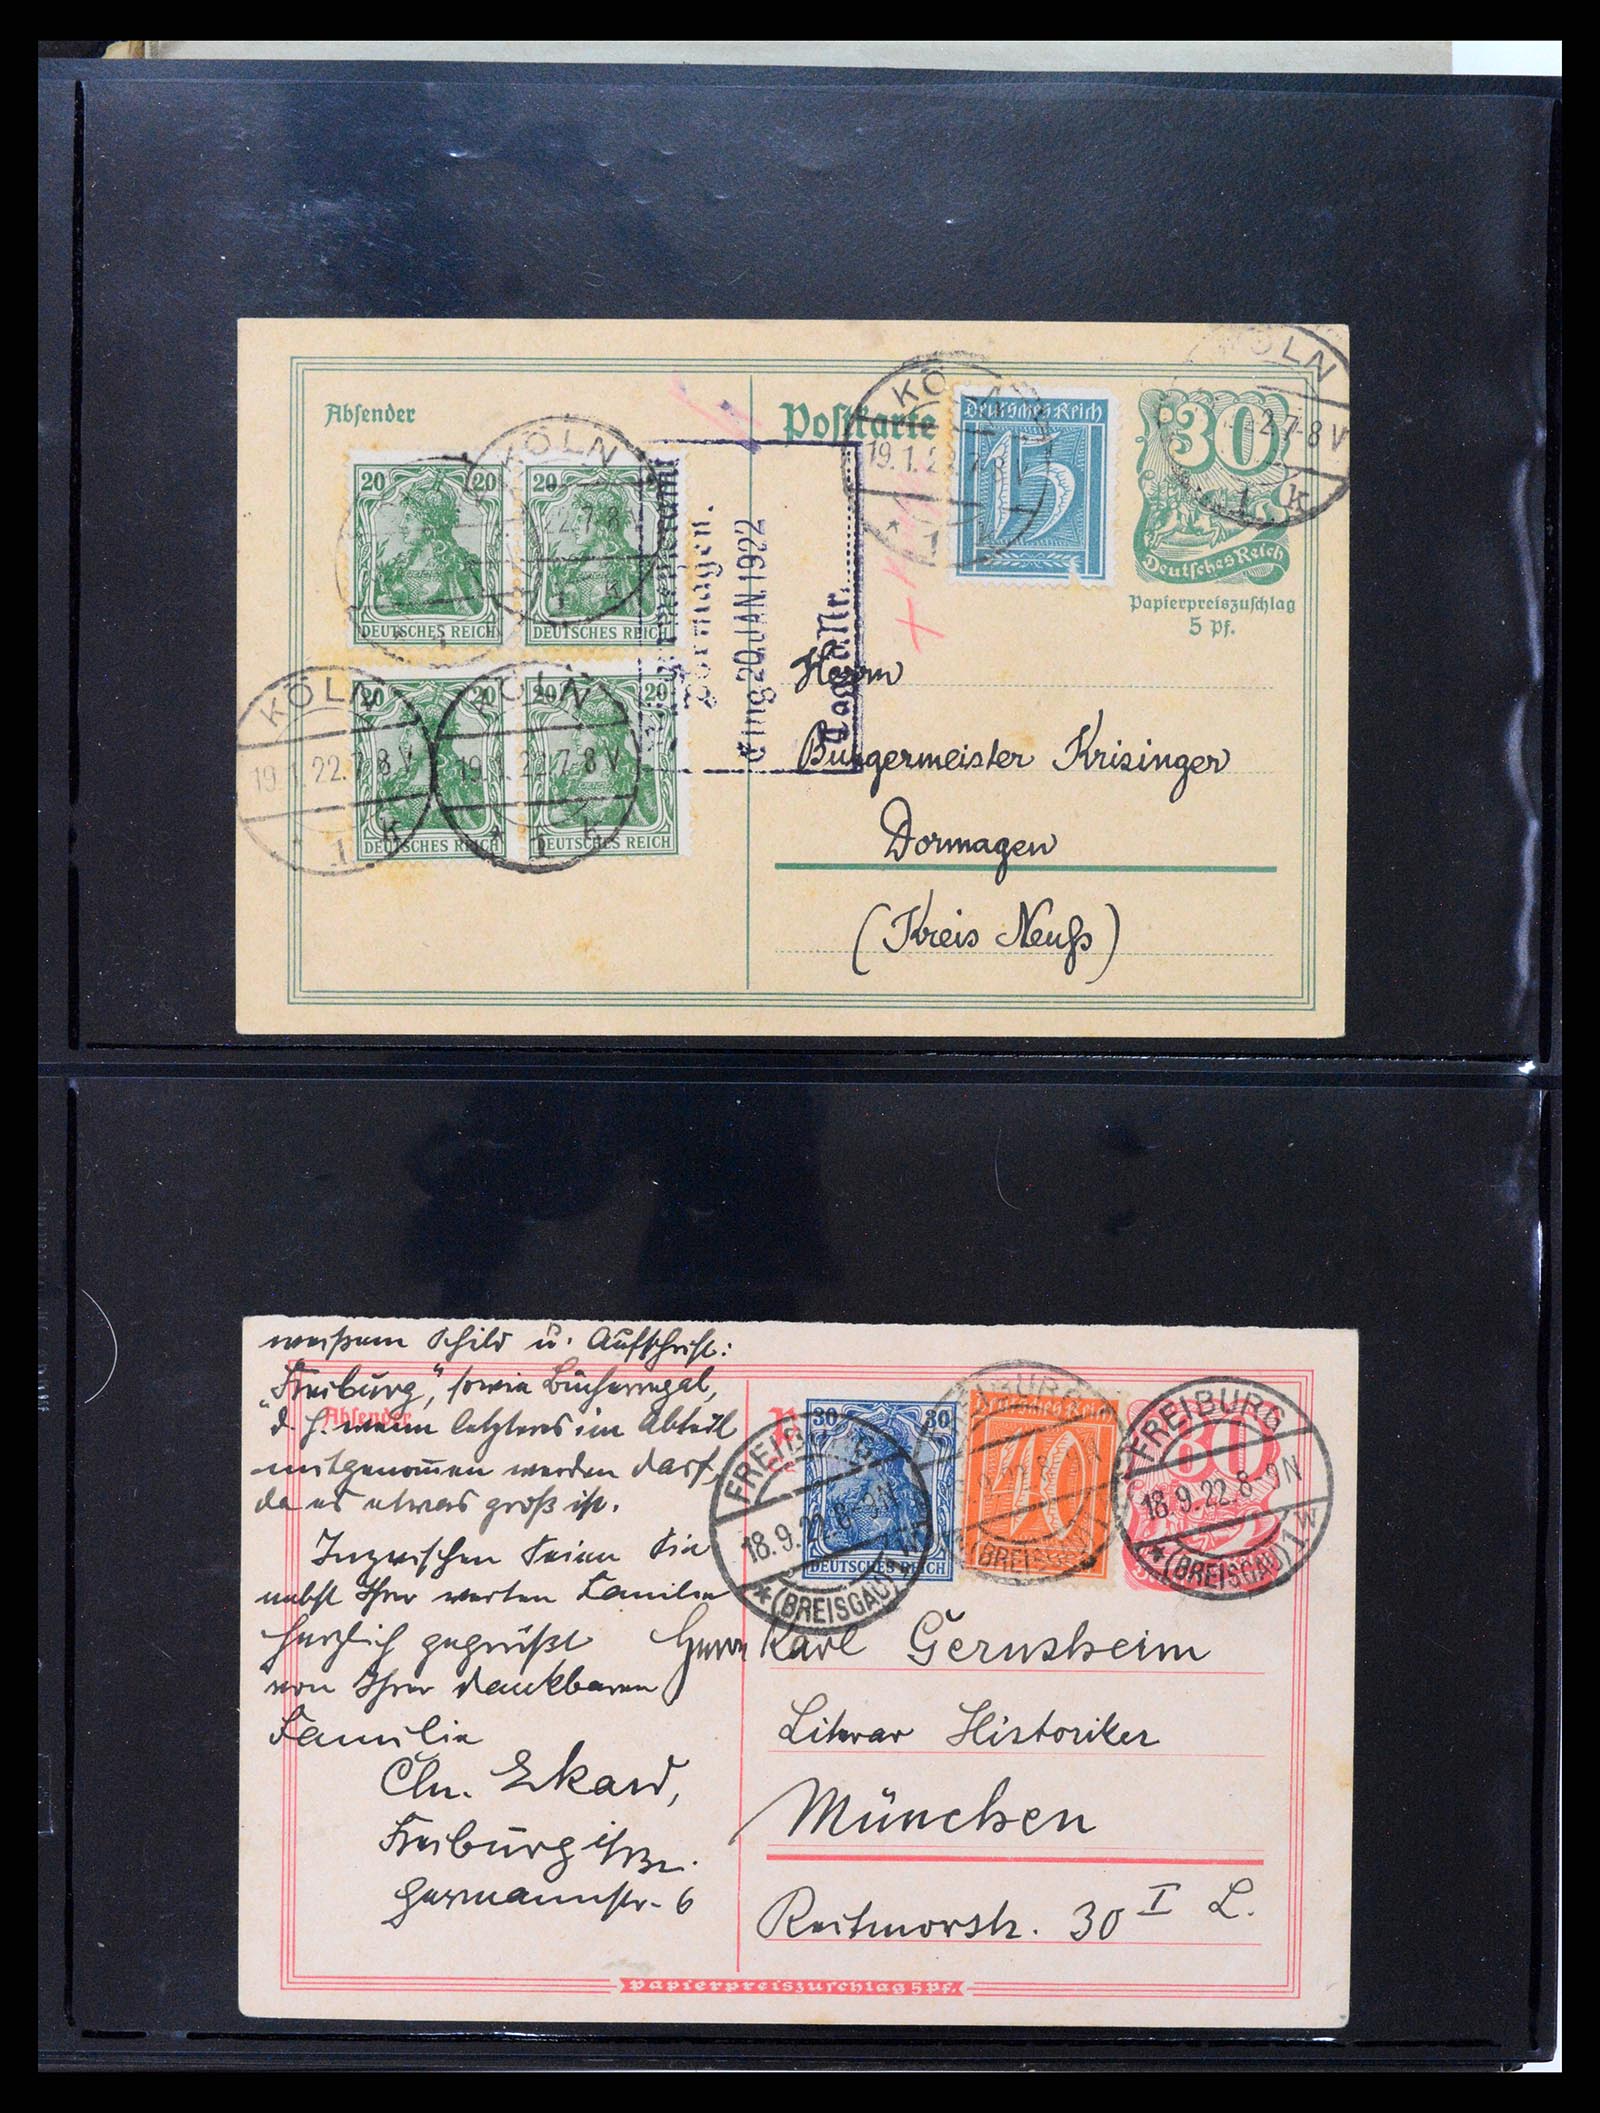 Absender
Postkarte
KÖLN
19.1.22.7-8V
* 1 k
Deutsches Reich
15
KÖLN
2.7-8V
1 K
30
Deutsches Reich
Papierpreiszuschlag
5 Pf.
20 20
DEUTSCHES REICH
20 20
DEUTSCHES REICH
KÖLN
22.7-8
1 k
20 20
DEUTSCHES REICH
20 20
DEUTSCHES REICH
KÖLN
19.1.22.7-8V
* 1 K
KÖLN
19.1.22.7-8V
* 1 k
Dormagen.
Eing. 20. JAN. 1922
Tageb. Nr.
Herrn
Bürgermeister Krisinger
Dormagen
(Kreis Neuß)
weißem Schild u. Aufschrift:
"Freiburg", sowie Bücherregal,
d. h. wenn letzteres im Abteil
mitgenommen werden darf,
da es etwas groß ist.
Inzwischen seien Sie
nebst Ihrer werten Familie
herzlich gegrüßt
von Ihrer dankbaren
Familie
Chr. Ekard,
Freiburg i/Br.
Hermannstr. 6
Absender
30 30
DEUTSCHES REICH
Deutsches Reich
40
30
FREIBURG
18.9.22.8-9N
* (BREISGAU) 1w
FREIBURG
9.22.8-9N
(BREISGAU)
FREIBURG
18.9.22.8-9N
* (BREISGAU) 1w
Herrn Karl Gernsheim
Literar Historiker
München
Reitmorstr. 30 I L.
Papierpreiszuschlag 5 Pf.